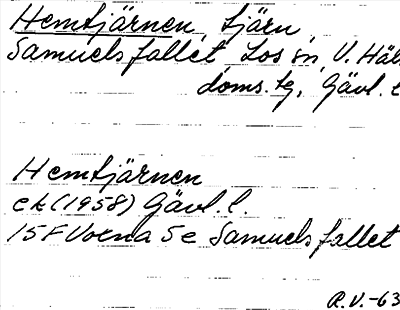 Hemtjärnen, tjärn,
Samuelsfallet, Los sn, V. Häl
doms. tg, Gävl. l
Hemtjärnen
ek (1958) Gävl. l.
15F Voxna 5e Samuelsfallet
R.V.-63